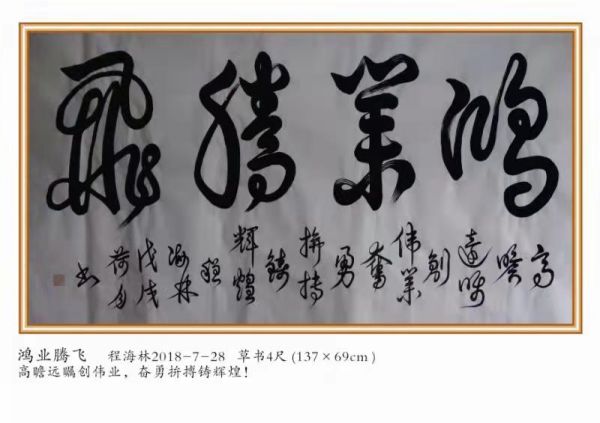 鴻業騰飛
高瞻遠矚創偉業奮勇拚搏鑄輝煌程海林戊戌荷月书
鸿业腾飞 程海林2018-7-28 草书4尺 (137×69cm)
高瞻远瞩创伟业，奋勇拚搏铸辉煌!